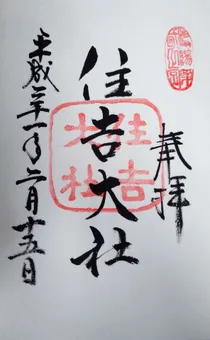 奉拝
住吉大社
住吉
大社
平成二十一年六月十五日